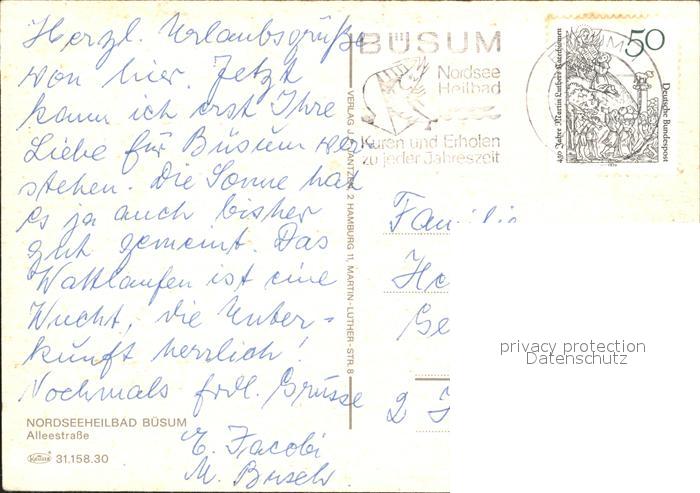 Herzl. Urlaubsgrüße
von hier. Jetzt
kann ich erst Ihre
Liebe für Büsum ver
stehen. Die Sonne hat
es ja auch bisher
gut gemeint. Das
Wattlaufen ist eine
Wucht, die Unter-
kunft herrlich!
Nochmals frdl. Grüsse
E. Jacobi
M. Busch
NORDSEEHEILBAD BÜSUM
Alleestraße
31.158.30
VERLAG J. 2 HAMBURG 11, MARTIN-LUTHER-STR. 8
BÜSUM
Nordsee
Heilbad
Kuren und Erholen
zu jeder Jahreszeit
50
450 Jahre Martin Luthers Katechismen
Deutsche Bundespost
Familie
2
privacy protection
Datenschutz